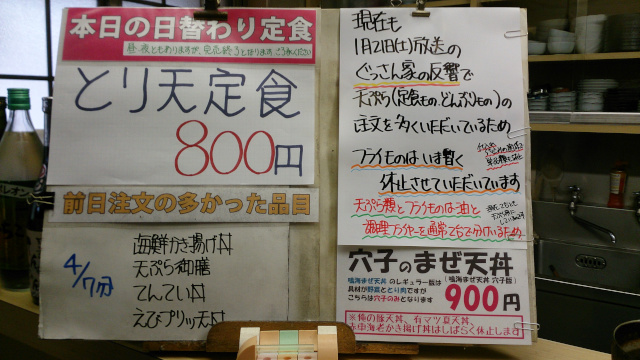 本日の日替わり定食
昼・夜ともありますが、完売終了となります。ご了承ください
とり天定食
800円
前日注文の多かった品目
4/7分
海鮮かき揚げ丼
天ぷら御膳
てんてい丼
えびプリッ天丼
現在も
1月21日(土)放送の
ぐっさん家の反響で
天ぷら(定食もの、どんぶりもの)の
注文を多くいただいているため
フライものはいま暫く
休止させていただいています
天ぷら類とフライものは油と
調理フライヤーを通常でも分けているため
穴子のまぜ天丼
鳴海まぜ天丼 のレギュラー版は
具材が野菜ととり肉ですが
こちらは穴子のみとなります
(鳴海まぜ天丼 穴子版)
900円
有マツ夏天丼、
かき揚げ丼はしばらく休止します